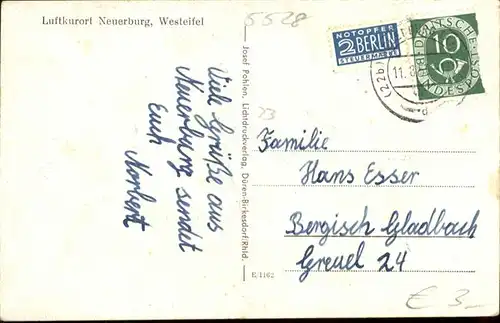 Luftkurort Neuerburg, Westeifel
5528
Viele Grüße aus
Neuerburg sendet
Euch
Norbert
Josef Pohlen, Lichtdruckverlag, Düren-Birkesdorf/Rhld.
E/1162
NOTOPFER
2 BERLIN
STEUERMARKE
DEUTSCHE
10
(22b)
11.8
23
Familie
Hans Esser
Bergisch Gladbach
Greuel 24
€ 3,-